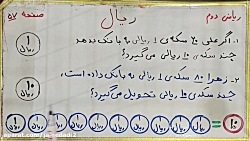 ریاضی دوم
ریال
صفحه ۵۷
۱. اگر علی ۲۰ سکه‌ی ۱ ریالی به بانک بدهد
چند سکه‌ی ۱۰ ریالی می‌گیرد؟
۱ ریال
۲. زهرا ۸۰ سکه‌ی ۱ ریالی به بانک داده است،
چند سکه‌ی ۱۰ ریالی تحویل می‌گیرد؟
۱۰ ریال
۱ ریال ۱ ریال ۱ ریال ۱ ریال ۱ ریال ۱ ریال ۱ ریال ۱ ریال ۱ ریال ۱ ریال = ۱۰ ریال